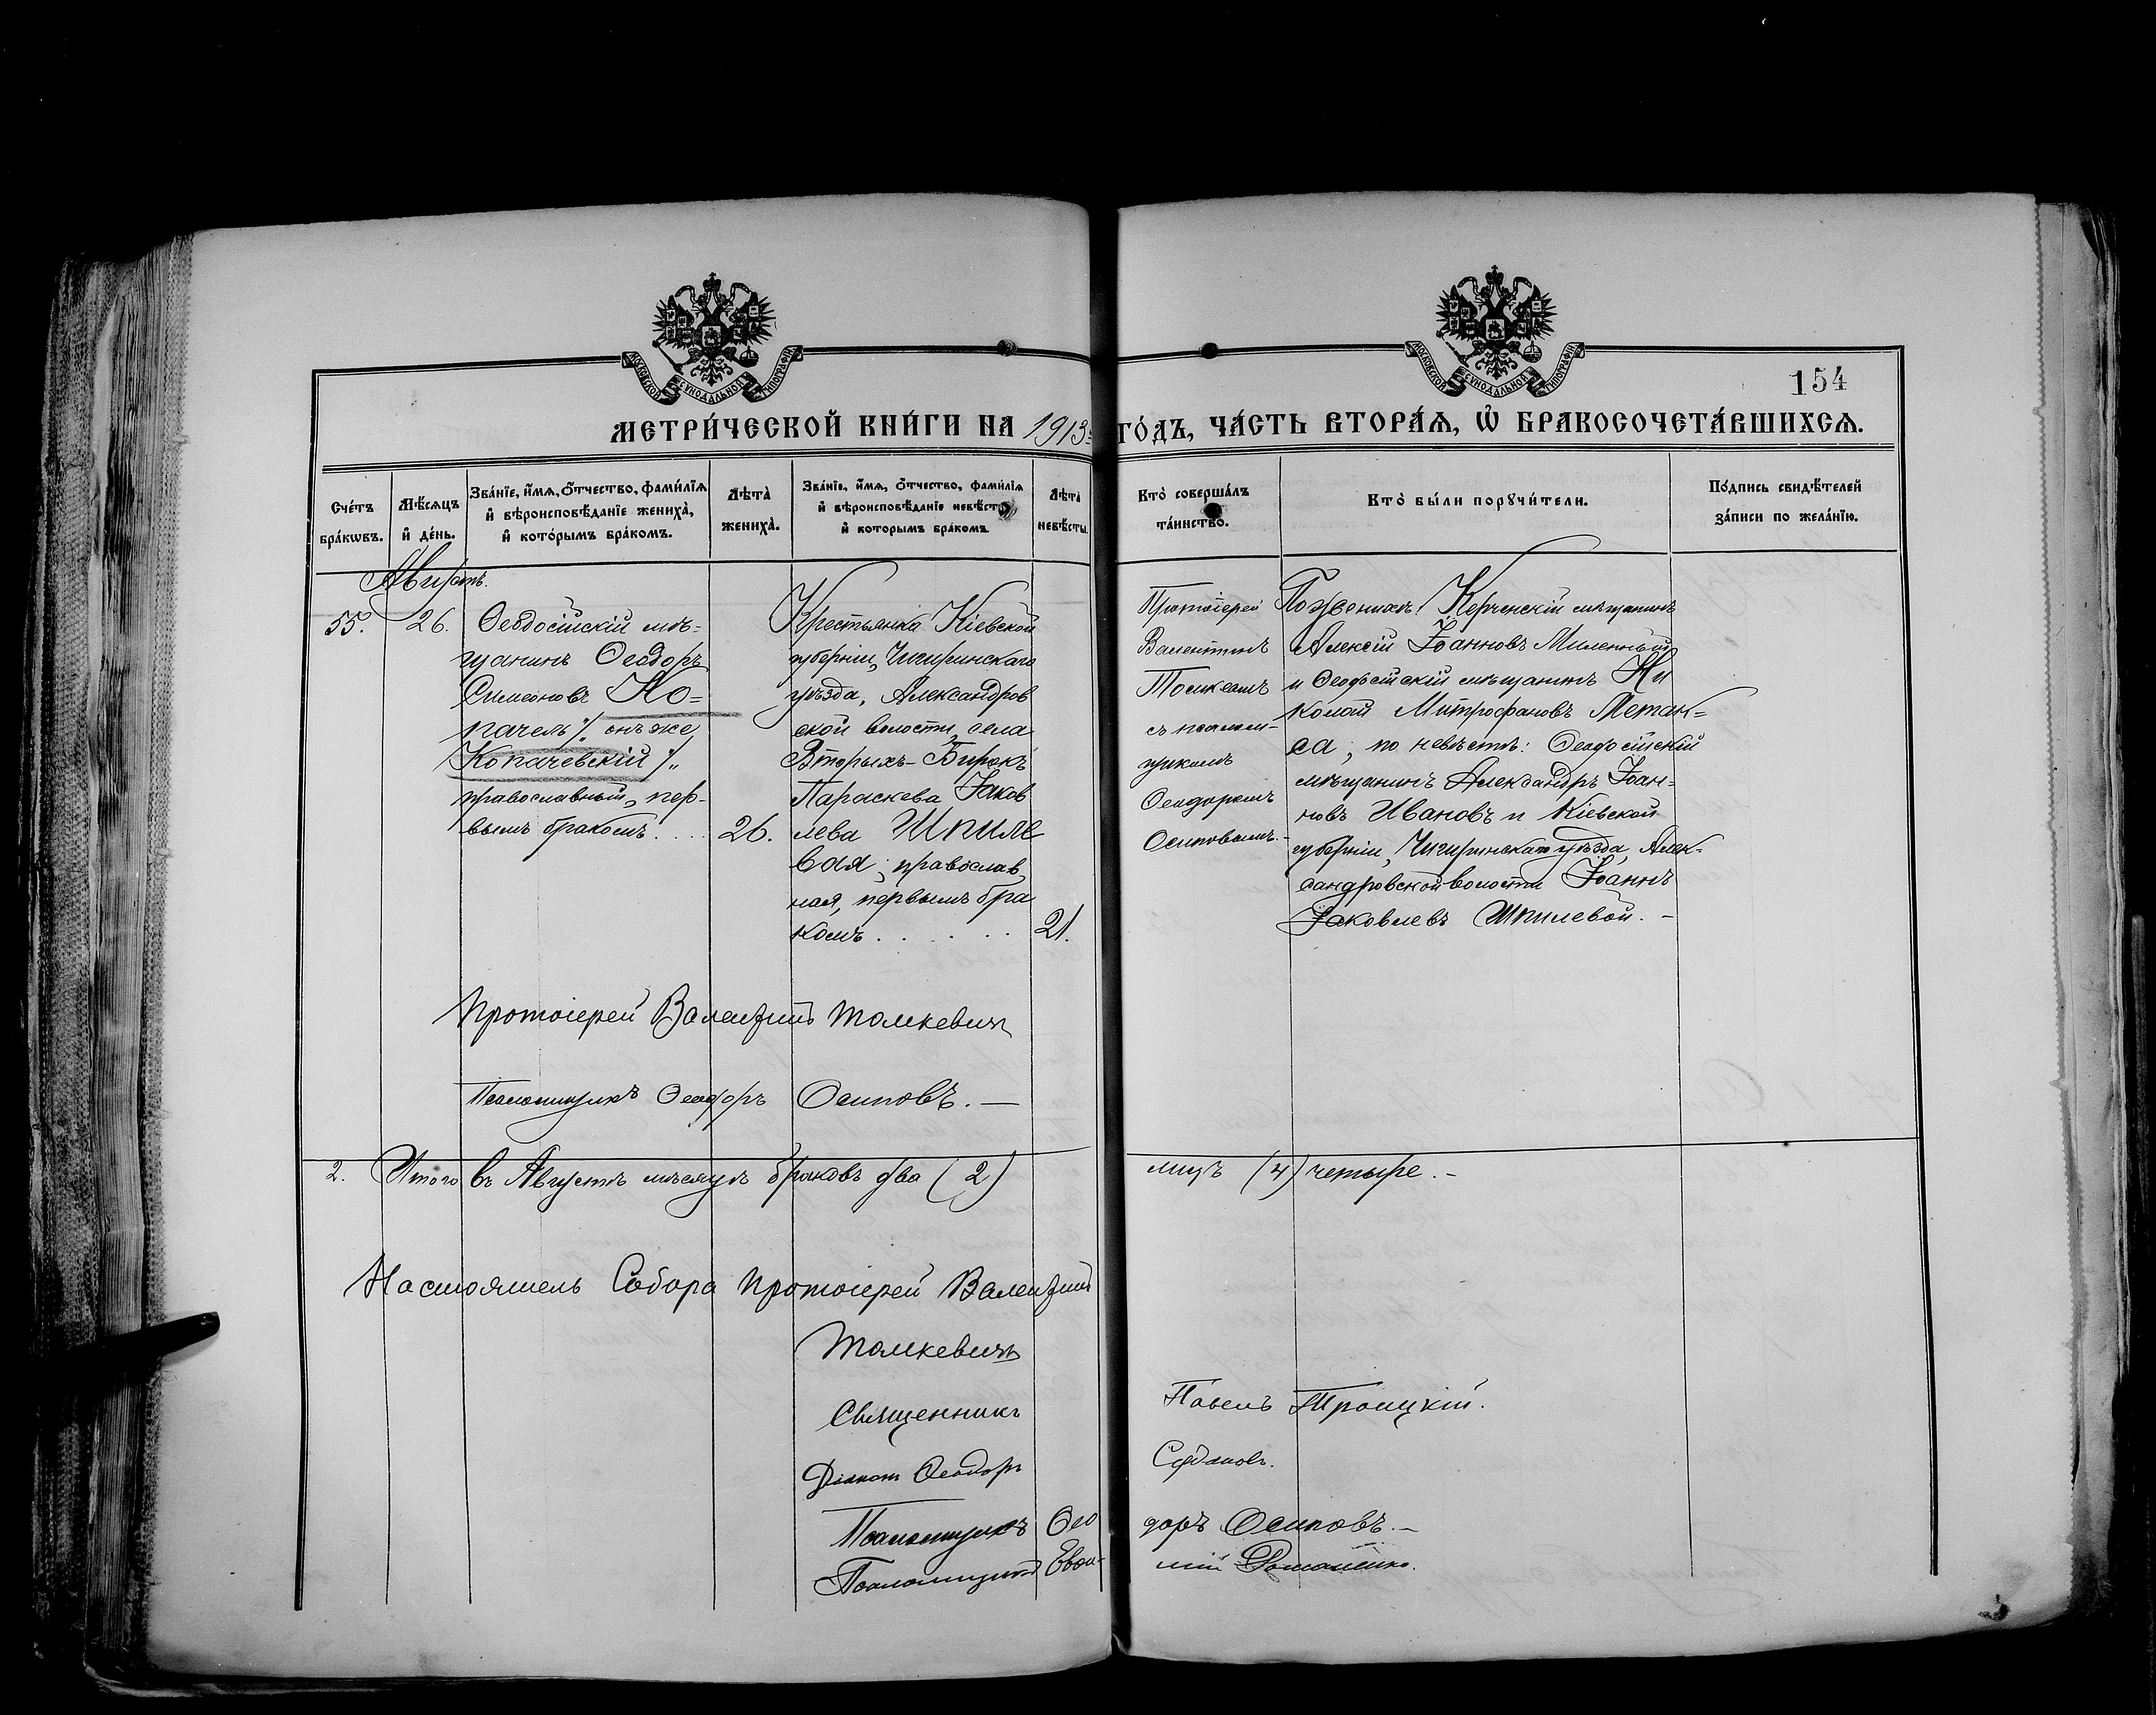 МОСКОВСКОЙ СѴНОДАЛЬНОЙ ТИПОГРАФІИ
МОСКОВСКОЙ СѴНОДАЛЬНОЙ ТИПОГРАФІИ
154
МЕТРИ́ЧЕСКОЙ КНИ́ГИ НА 1913 ГО́ДЪ, ЧА́СТЬ ВТОРА́Ѧ, Ѡ҆ БРАКОСОЧЕТА́ВШИХСѦ.
Сче́тъ
бра́кѡвъ.
Мѣ́сѧцъ
и҆ де́нь.
Зва́нїе, и҆́мѧ, ѻ҆́тчество, фами́лїѧ
и҆ вѣроисповѣ́данїе жениха̀,
и҆ кото́рымъ бра́комъ.
Лѣта̀
жениха̀.
Зва́нїе, и҆́мѧ, ѻ҆́тчество, фами́лїѧ
и҆ вѣроисповѣ́данїе невѣ́сты
и҆ кото́рымъ бра́комъ
Лѣта̀
невѣ́сты.
Кто̀ соверша́лъ
та́инство.
Кто̀ бы́ли порꙋчи́тели.
По́дпись свидѣ́телей
за́писи по жела́нїю.
Августъ.
55.
26.
Ѳеодосійскій мѣ=
щанинъ Ѳеодоръ
Симеоновъ Ко=
пачель /. онъ же
Копачевскій /.
православный, пер-
вымъ бракомъ. . . .
26.
Крестьянка Кіевской
губерніи, Чигиринскаго
уѣзда, Александров
ской волости, села
Вторыхъ-Бирокъ
Параскева Іаков
лева Шпиле
вая, православ
ная, первымъ бра
комъ . . . . . .
21.
Протоіерей
Валентинъ
Томкевичъ
съ псалом-
щикомъ
Ѳеодоромъ
Осиповымъ. -
По женихѣ: Керченскій мѣщанинъ
Алексій Іоанновъ Миленный
и Ѳеодосійскій мѣщанинъ Ни
колай Митрофановъ Метак=
са; по невѣстѣ: Ѳеодосійскій
мѣщанинъ Александръ Іоан=
новъ Ивановъ и Кіевской
губерніи, Чигиринскаго уѣзда, Алек-
сандровской волости Іоаннъ
Іаковлевъ Шпилевой. -
Протоіерей Валентинъ Томкевичъ
Псаломщикъ Ѳеодоръ Осиповъ. —
2. Итого въ Августѣ мѣсяцѣ браковъ два (2) лицъ (4) четыре. -
Настоятель Собора протоіерей Валентинъ
Томкевичъ
Священникъ Павелъ Троицкій.
Діаконъ Ѳеодоръ
Псаломщикъ Ѳеодоръ Осиповъ. —
Псаломщикъ